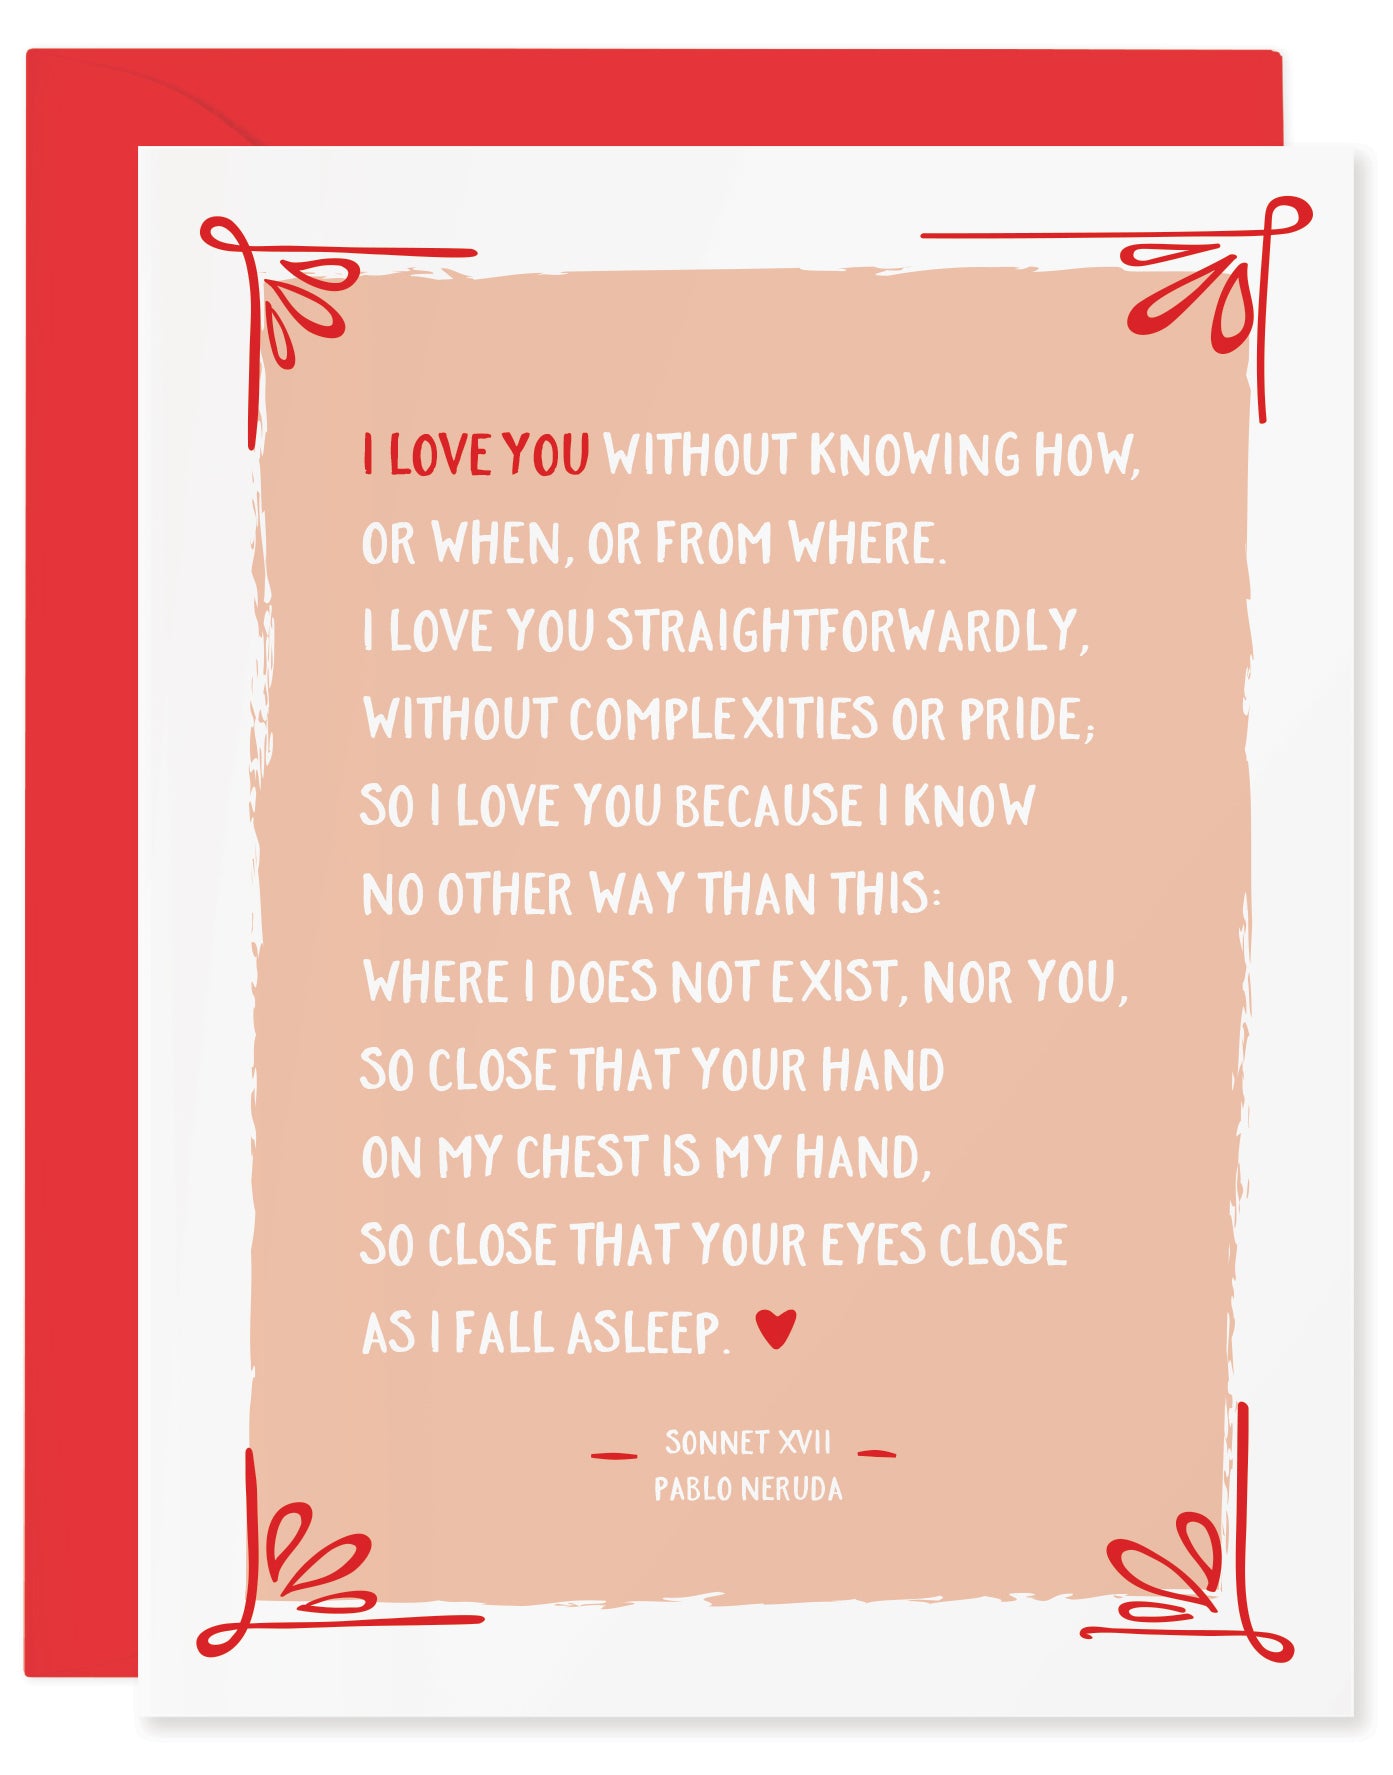 I LOVE YOU WITHOUT KNOWING HOW,
OR WHEN, OR FROM WHERE.
I LOVE YOU STRAIGHTFORWARDLY,
WITHOUT COMPLEXITIES OR PRIDE;
SO I LOVE YOU BECAUSE I KNOW
NO OTHER WAY THAN THIS:
WHERE I DOES NOT EXIST, NOR YOU,
SO CLOSE THAT YOUR HAND
ON MY CHEST IS MY HAND,
SO CLOSE THAT YOUR EYES CLOSE
AS I FALL ASLEEP.
SONNET XVII
PABLO NERUDA